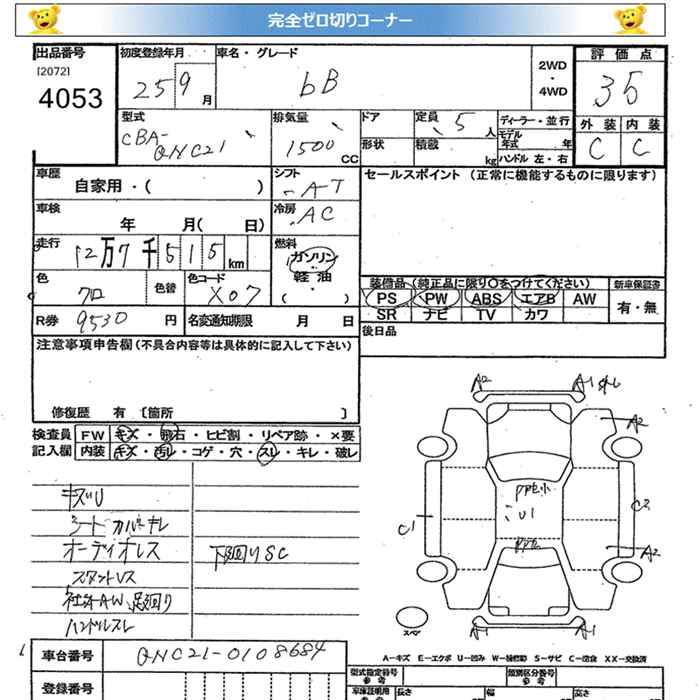 完全ゼロ切りコーナー
出品番号 初度登録年月 車名・グレード 評価点
[2072]
4053 25 9月 bB 2WD・4WD 35
型式 排気量 ドア 定員 ディーラー・並行 外装 内装
CBA-QNC21 1500CC 5人 モデル年式 年 C C
形状 積載 kg ハンドル 左・右
車歴 シフト セールスポイント (正常に機能するものに限ります)
自家用・( ) AT
車検 冷房
年 月( 日) AC
走行 燃料
12万7千515km ガソリン・軽油・( )
色 色替 色コード 装備品(純正品に限り○をつけてください) 新車保証書
クロ X07 PS PW ABS エアB AW 有・無
SR ナビ TV カワ
R券 9530円 名変通知期限 月 日 後日品
注意事項申告欄(不具合内容等は具体的に記入して下さい)
修復歴 有 [箇所 ]
検査員 FW キズ・飛石・ヒビ割・リペア跡・×要
記入欄 内装 キズ・汚レ・コゲ・穴・スレ・キレ・破レ
キズU
シートカバーキレ
オーディオレス 下回りSC
スタットレス
社外AW、足回り
ハンドルスレ
A2 A1
A2
U1
C1 C2
A2
A1 A1
スペア
A-キズ E-エクボ U-凹み W-補修跡 S-サビ C-腐食 XX-交換済
車台番号 QNC21-0108684 型式指定番号 参考 類別区分番号 参考
登録番号 車庫証明用 参考 長さ 幅 高さ